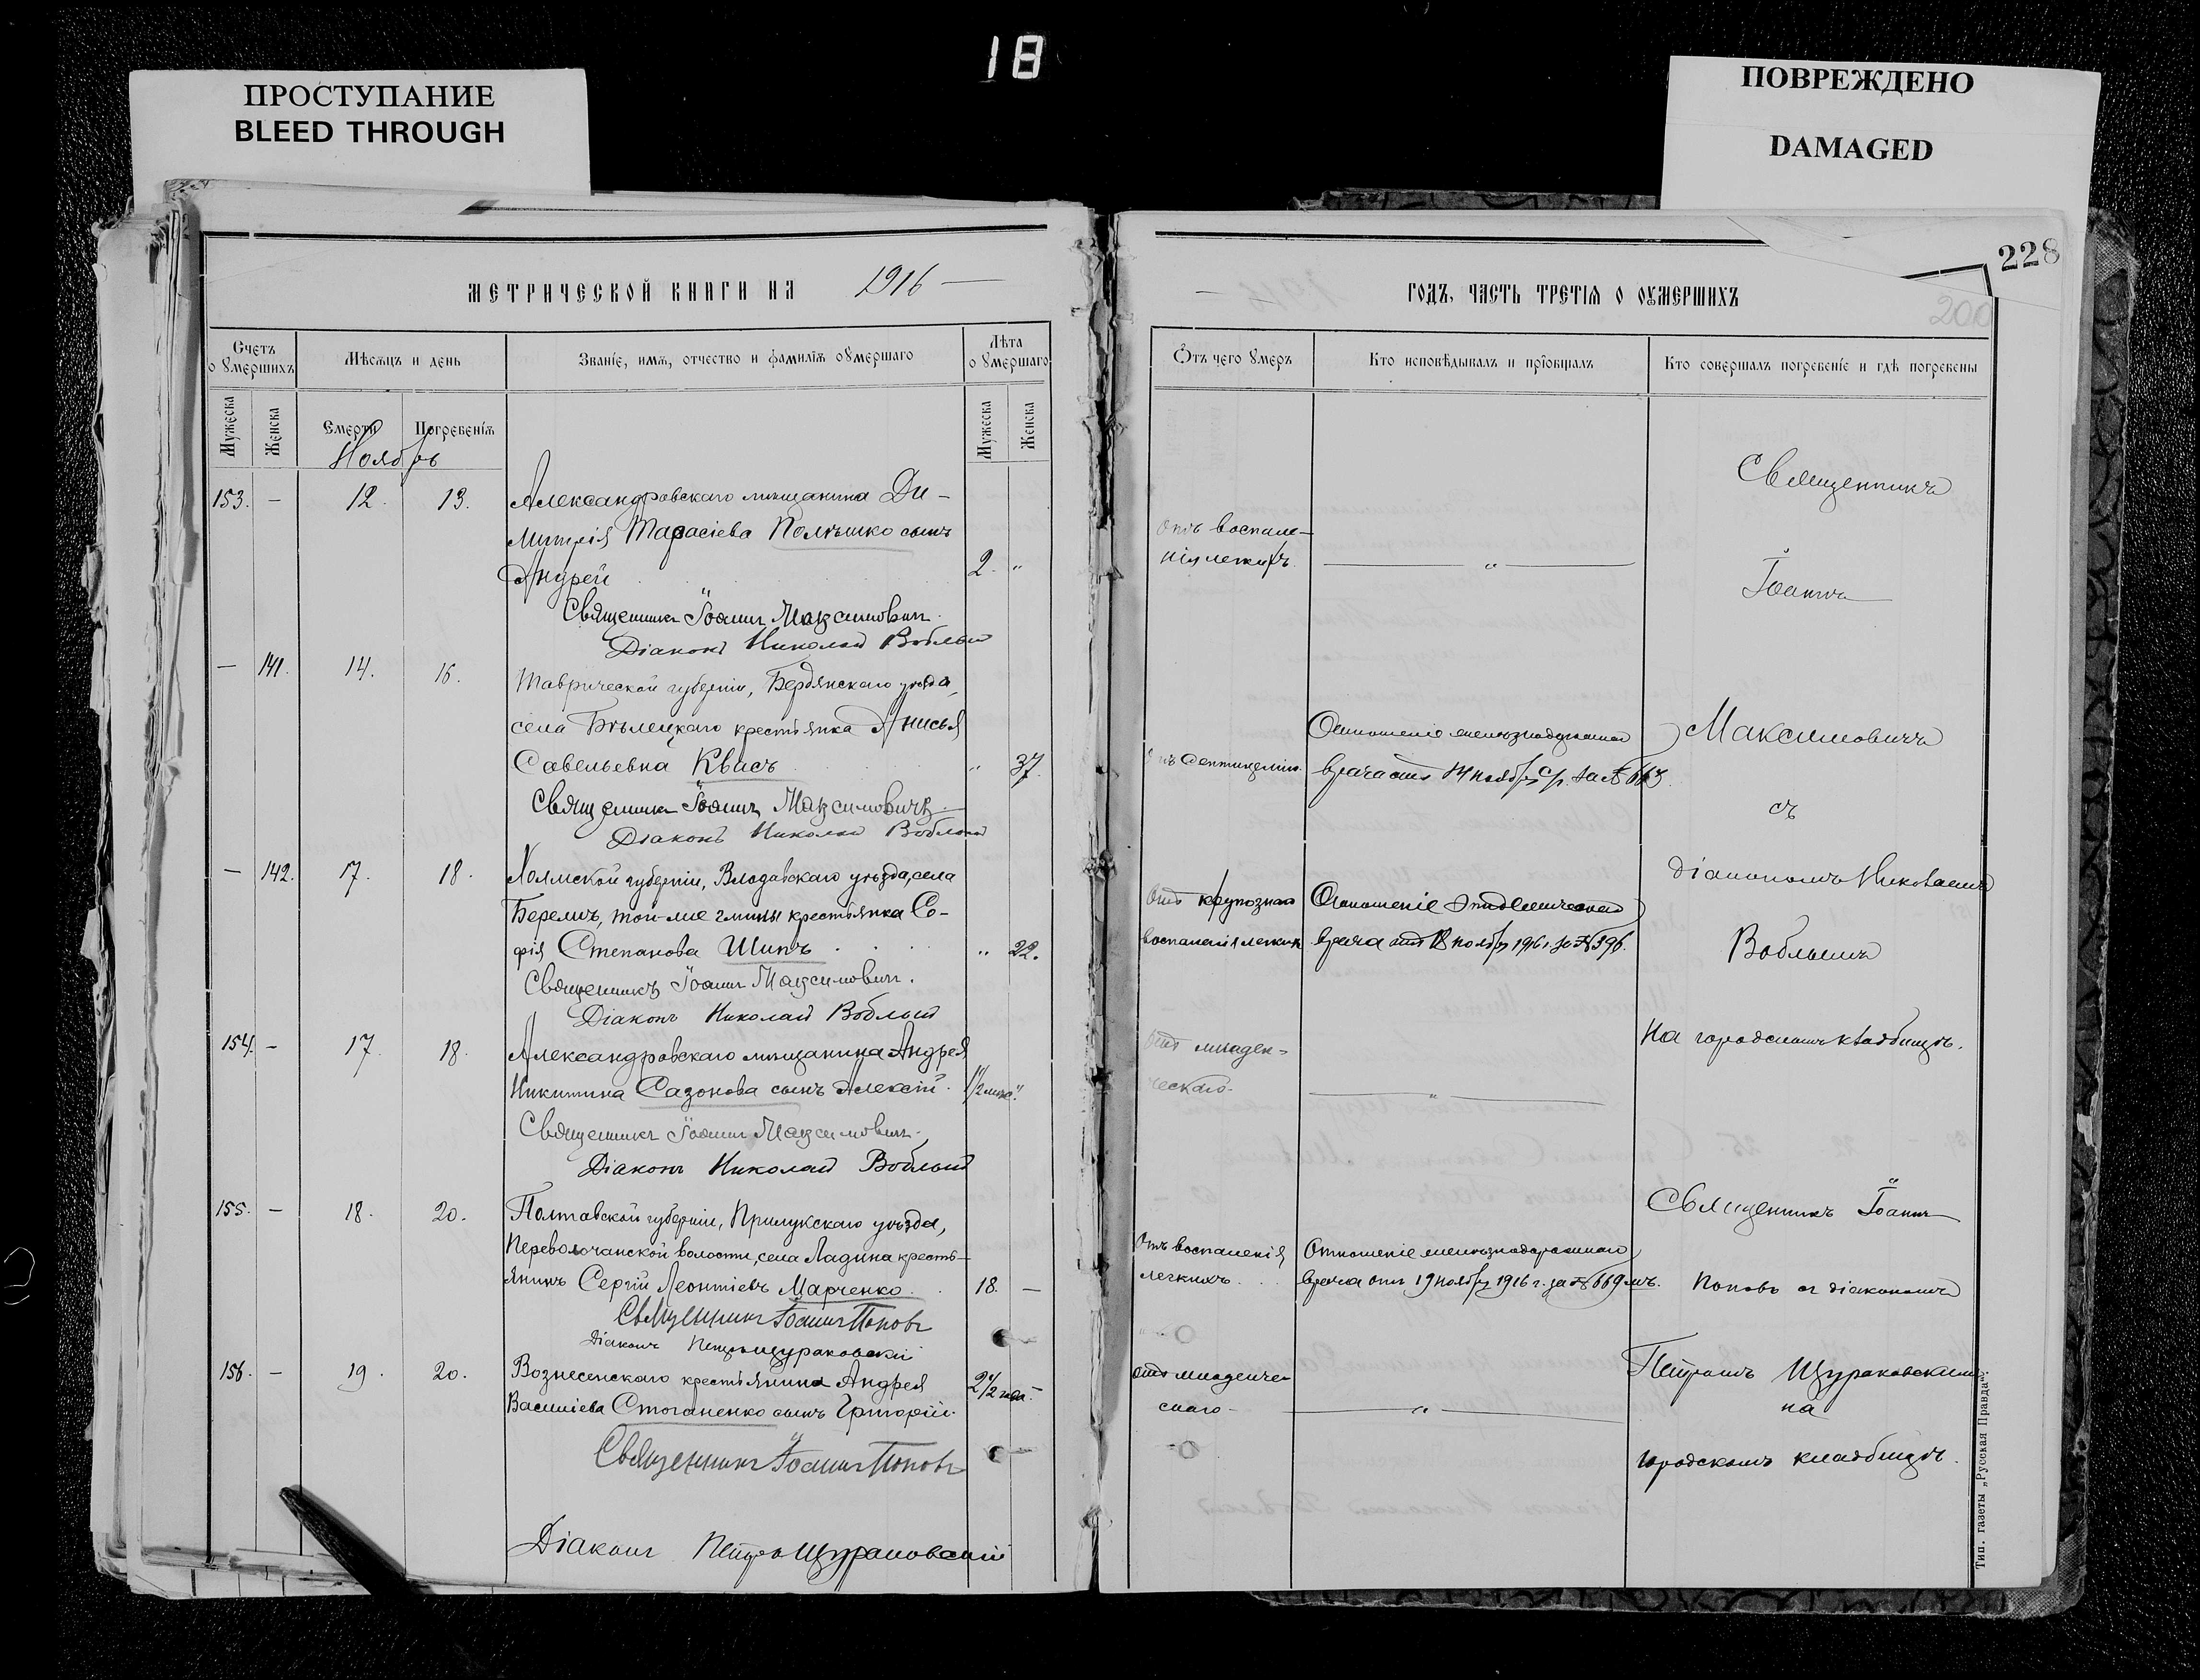 18
ПРОСТУПАНИЕ
BLEED THROUGH
ПОВРЕЖДЕНО
DAMAGED
228
200
МЕТРИЧЕСКОЙ КНИГИ НА 1916
Счетъ о умершихъ
Мѣсяцъ и день
Званіе, имя, отчество и фамилія умершаго
Лѣта умершаго
Мужеска
Женска
Смерти
Погребенія
Мужеска
Женска
Ноябрь
153. — 12. 13. Александровскаго мѣщанина Ди-
митрія Тарасіева Полѣшко сынъ
Андрей 2. "
Священникъ Іоаннъ Максимовичъ
Діаконъ Николай Воблый
— 141. 14. 16. Таврической губерніи, Бердянскаго уѣзда,
села Бѣлецкаго крестьянка Анисья
Савельевна Квасъ " 37.
Священникъ Іоаннъ Максимовичъ
Діаконъ Николай Воблый
— 142. 17. 18. Холмской губерніи, Влодавскаго уѣзда, села
Беремъ, той-же гмины крестьянка Со-
фія Степанова Шипъ " 22.
Священникъ Іоаннъ Максимовичъ.
Діаконъ Николай Воблый
154. — 17. 18. Александровскаго мѣщанина Андрея
Никитина Сазонова сынъ Алексій
Священникъ Іоаннъ Максимовичъ
Діаконъ Николай Воблый
155. — 18. 20. Полтавской губерніи, Прилукскаго уѣзда,
Переволочанской волости, села Ладина кресть-
янинъ Сергій Леонтіевъ Марченко. 18. —
Священникъ Іоаннъ Поповъ
Діаконъ Петръ Щураковскій
156. — 19. 20. Вознесенскаго крестьянина Андрея 2 1/2 года —
Василіева Стоганенко сынъ Григорій.
Священникъ Іоаннъ Поповъ
Діаконъ Петръ Щураковскій
ГОДЪ, ЧАСТЬ ТРЕТІЯ О УМЕРШИХЪ
Отъ чего умеръ
Кто исповѣдывалъ и пріобщалъ
Кто совершалъ погребеніе и гдѣ погребены
Священникъ
Отъ воспале-
нія легкихъ. — " —
Іоаннъ
Отношеніе желѣзнодорожнаго
Максимовичъ
Отъ септицеміи. врача отъ 14 ноября с/г. за №
съ
діакономъ Николаемъ
Отъ крупознаго Отношеніе эпидемическаго
воспаленія легкихъ врача отъ 18 ноября 1916 г. за № 396.
Воблымъ
На городскомъ кладбищѣ.
Отъ младен-
ческаго. — " —
Священникъ Іоаннъ
Отъ воспаленія Отношеніе желѣзнодорожнаго
легкихъ. врача отъ 19 ноября 1916 г. за № 669
Поповъ съ діакономъ
Отъ младенче-
Петромъ Щураковскимъ
скаго — " —
на
городскомъ кладбищѣ.
Тип. газеты „Русская Правда“.